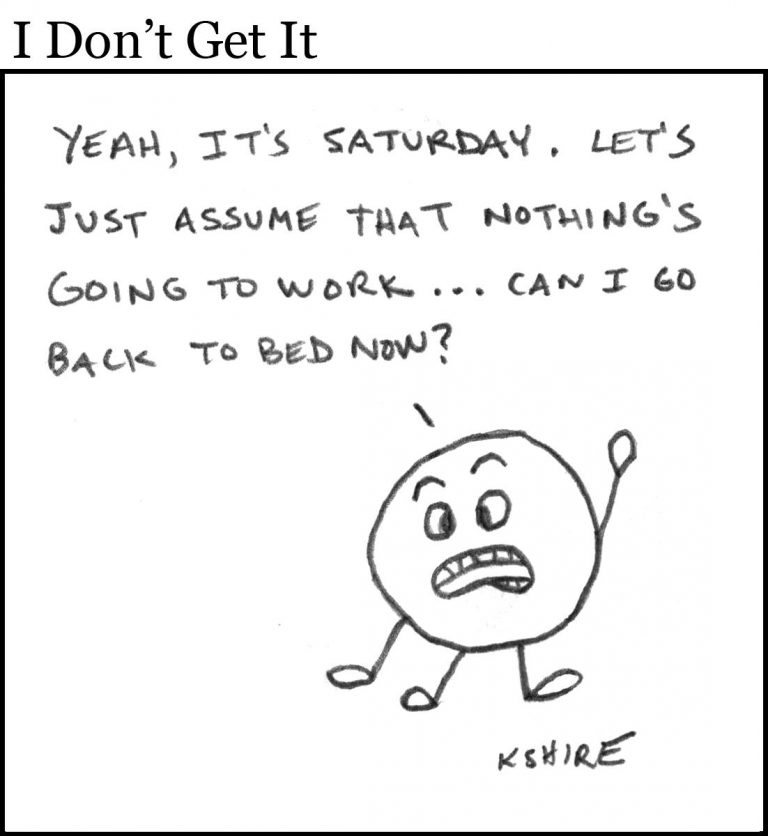 I Don’t Get It
YEAH, IT'S SATURDAY. LET'S
JUST ASSUME THAT NOTHING'S
GOING TO WORK... CAN I GO
BACK TO BED NOW?
KSHIRE